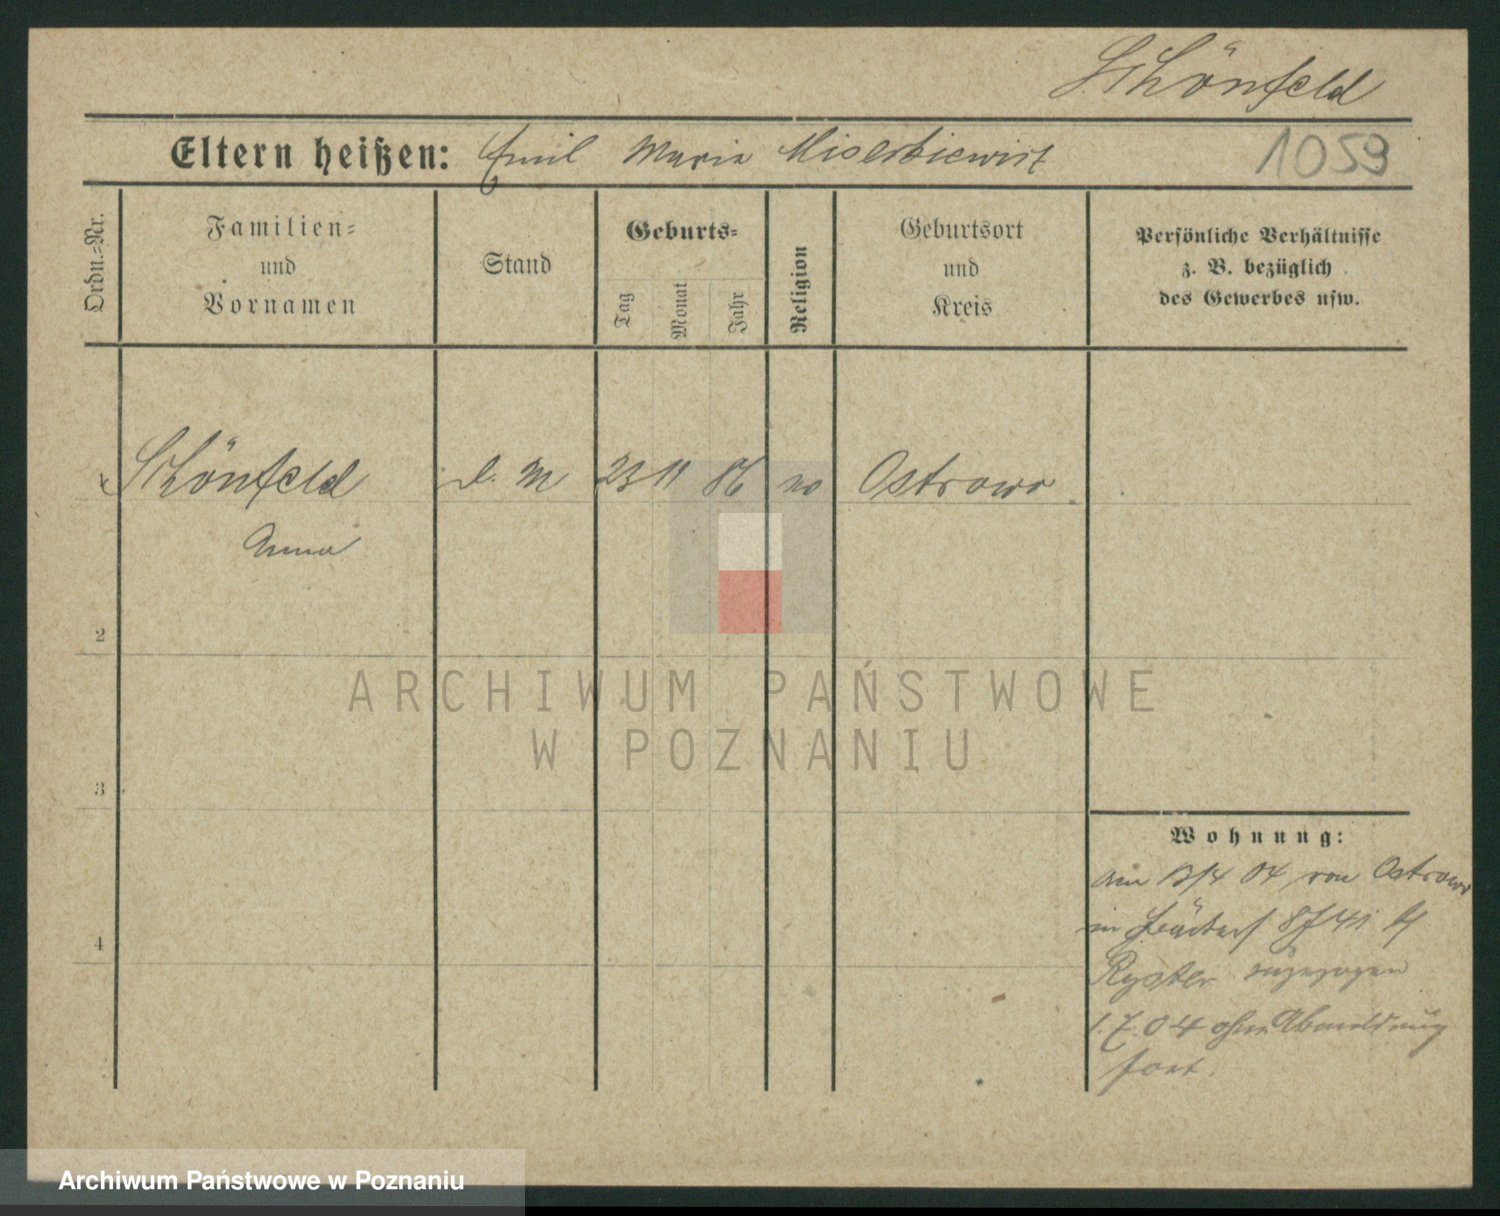 Schönfeld
Eltern heißen: Emil Maria
1059
Ordn.-Nr.
Familien-
und
Vornamen
Stand
Geburts-
Tag
Monat
Jahr
Religion
Geburtsort
und
Kreis
Persönliche Verhältnisse
z. B. bezüglich
des Gewerbes usw.
1 Schönfeld d. M 23 11 86 Ostrowo
Anna
2
ARCHIWUM PAŃSTWOWE
W POZNANIU
3
Wohnung:
am 13/4 04 von Ostrowo
in
4
Ryster zugezogen
1.7.04 ohne Abmeldung
fort.
Archiwum Państwowe w Poznaniu